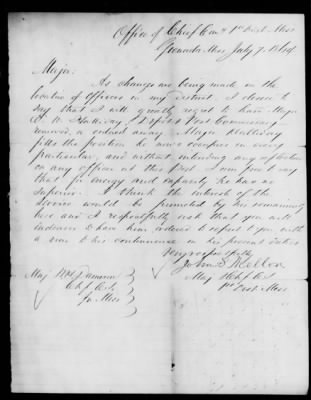 Office of Chief Com's 1st Dist Miss
Grenada Miss July 7. 1864
Major:
As changes are being made in the
location of Officers in my district. I desire to
say that I will greatly regret to have Major
W. Halliday, Post Commissary
removed, or ordered away. Major Halliday
fills the position he now occupies in every
particular, and without intending any reflection
on any officer at this Post I am free to say
that for energy and capacity he has no
Superior. I think the interests of the
Service would be promoted by his remaining
here and I respectfully ask that you will
endeavor to have him ordered to report to you with
a view to his continuance in his present duties
Very respectfully
John S Mellon
Maj & Chf C.S.
1st Dist Miss
Maj Wm
Chf C.S.
for Miss